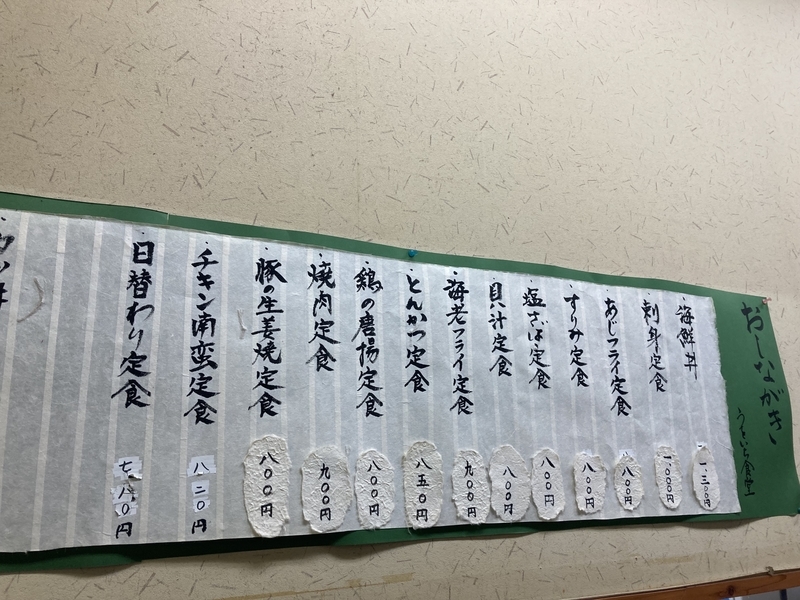 おしながき
うといち食堂
海鮮丼 一、三〇〇円
刺身定食 一、〇〇〇円
あじフライ定食 八〇〇円
すりみ定食 八〇〇円
塩さば定食 八〇〇円
貝汁定食 八〇〇円
海老フライ定食 九〇〇円
とんかつ定食 八五〇円
鶏の唐揚定食 八〇〇円
焼肉定食 九〇〇円
豚の生姜焼定食 八〇〇円
チキン南蛮定食 八二〇円
日替わり定食 七八〇円